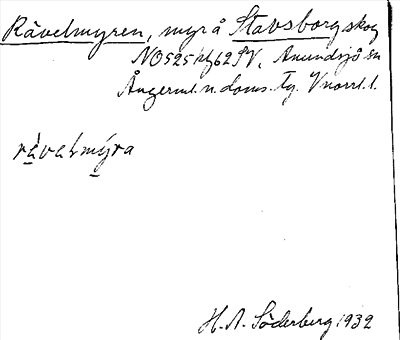 Rävelmyren, myr å Stavsborg skog
Anundsjö sn
Ångerml. n. doms. Tg. Vnorrl. l.
rävelmýra
H. A. Söderberg 1932